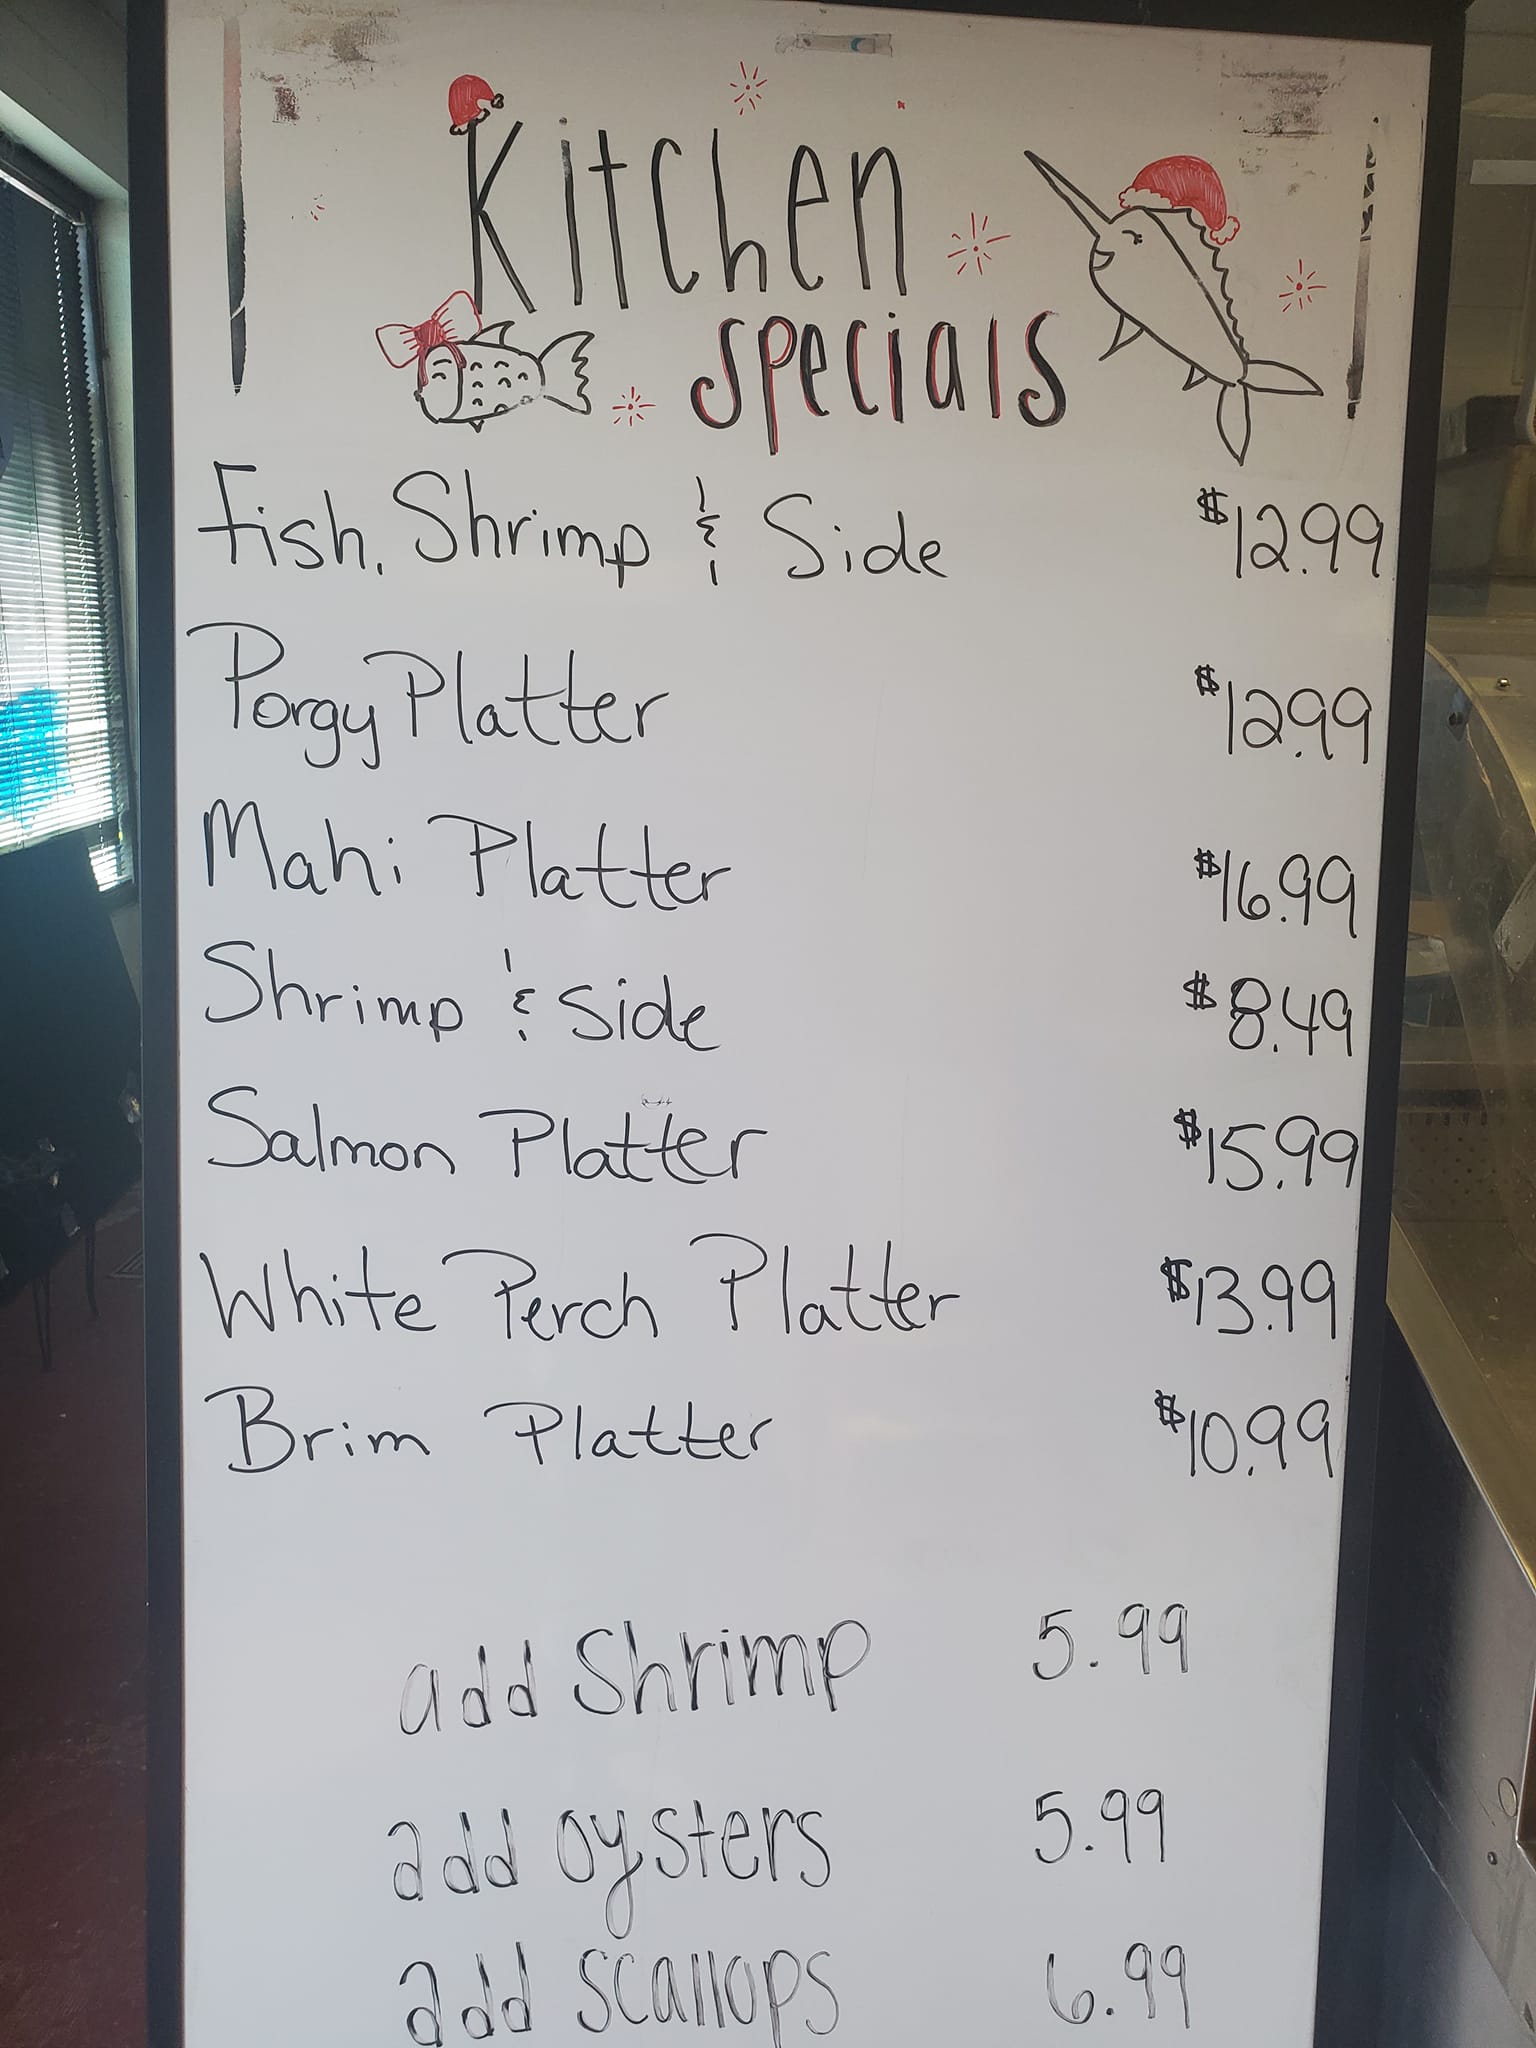 Kitchen
specials
Fish, Shrimp & Side $12.99
Porgy Platter $12.99
Mahi Platter $16.99
Shrimp & Side $8.49
Salmon Platter $15.99
White Perch Platter $13.99
Brim Platter $10.99
add Shrimp 5.99
add oysters 5.99
add scallops 6.99